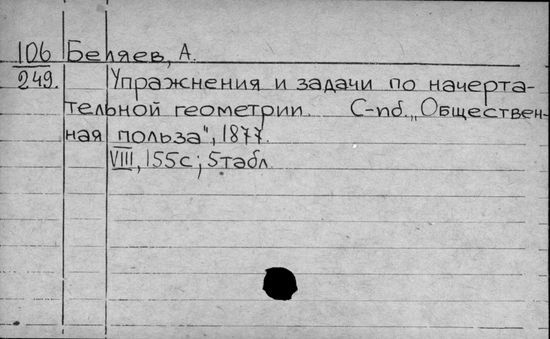 106 Беляев, А.
249. Упражнения и задачи по начерта-
тельной геометрии. С-пб. „Обществен-
ная польза", 1877.
VIII, 155с; 5табл.